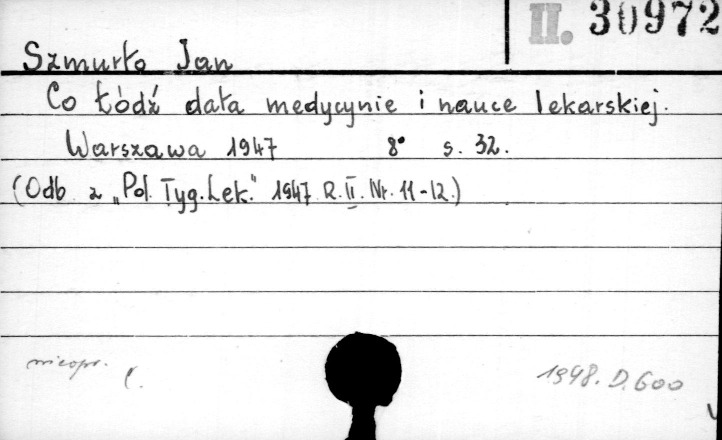 II. 30972
Szmurło Jan
Co Łódź dała medycynie i nauce lekarskiej.
Warszawa 1947 8° s. 32.
(Odb. z „Pol. Tyg. Lek." 1947. R. II. Nr. 11-12.)
nieopr.
1948. D. 600